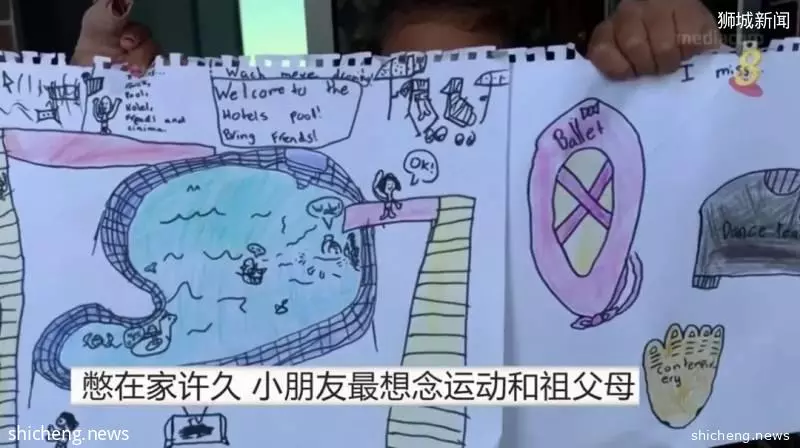 狮城新闻
mediacorp
8
I miss
Wach meve
Welcome to the
Hotels pool!
Bring Friends!
Hotel,
Friends and
cinima
OK!
Ballet
Dance tea
contemper
ery
憋在家许久 小朋友最想念运动和祖父母
shicheng.news
shicheng.news